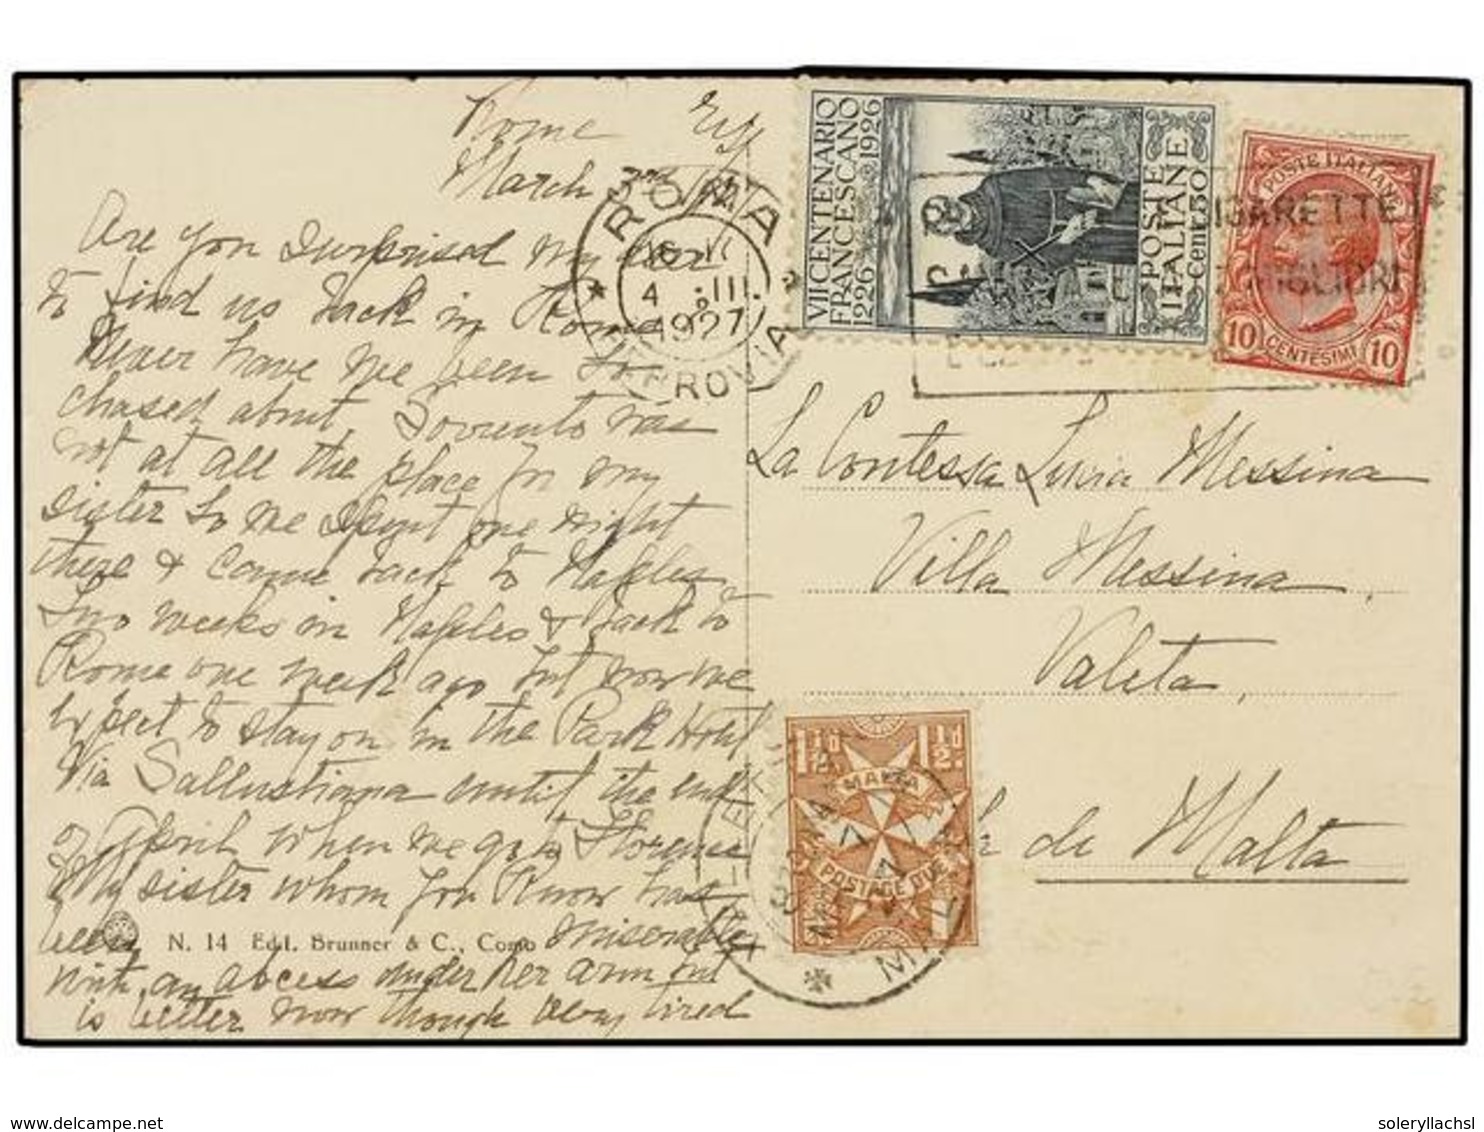 Rome
March 3rd
Are you surprised my dear
to find us back in Rome
Never have we been so
chased about. Sorrento was
not at all the place for my
sister so we spent one night
there & came back to Naples
Two weeks in Naples & back to
Rome one week ago but now we
expect to stay on in the Park Hotel
Via Sallustiana until the end
of April when we go to Florence
My sister whom you know has
been miserable
with an abcess under her arm but
is better now though very tired
N. 14 Ed. I. Brunner & C., Como
ROMA
4 .III.
1927
FERROVIA
VII CENTENARIO
FRANCESCANO
1226 1926
POSTE
ITALIANE
Cent. 30
POSTE ITALIANE
10 CENTESIMI 10
IGARETTE
MIGLIORI
La Contessa Lucia Messina
Villa Messina,
Valeta,
de Malta
1½d. 1½d.
MALTA
POSTAGE DUE
MALTA
delcampe.net
soleryllachsl